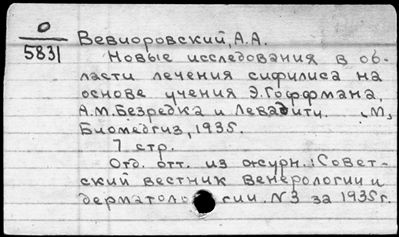 О
5831
Вевиоровский, А.А.
Новые исследования в об-
ласти лечения сифилиса на
основе учения Э.Гоффмана,
А.М.Безредка и Левадити. М,
Биомедгиз, 1935.
7 стр.
Отд. отт. из журн.: Совет-
ский вестник венерологии и
дерматологии. №3 за 1935г.